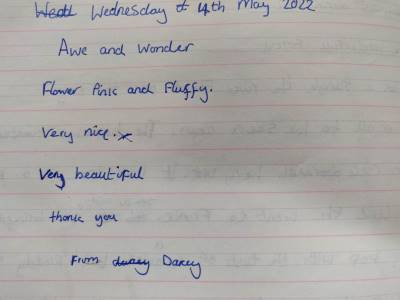 Wednesday 4th May 2022
Awe and Wonder
Flower Pink and Fluffy.
Very nice.
Very beautiful
thank you
From Darcy